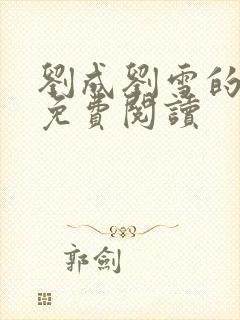 劉成劉雪的
免費閱讀
郭劍